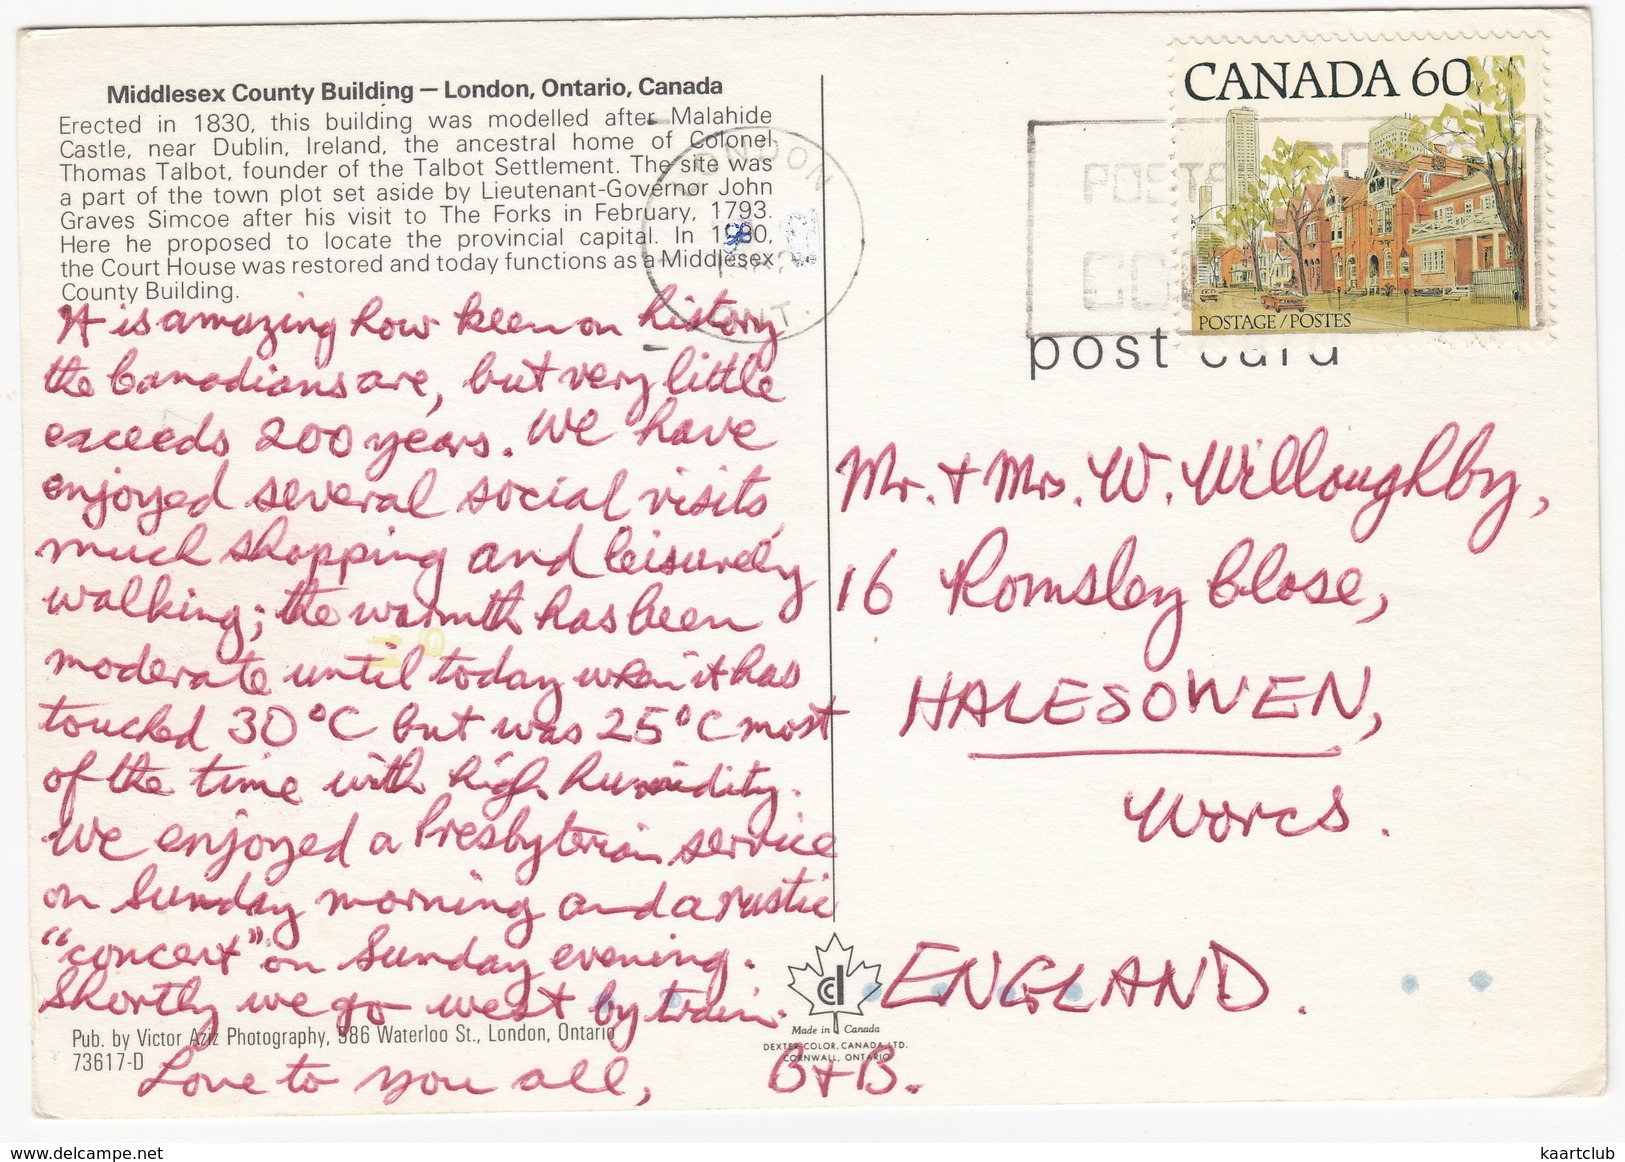 Middlesex County Building – London, Ontario, Canada
Erected in 1830, this building was modelled after Malahide
Castle, near Dublin, Ireland, the ancestral home of Colonel
Thomas Talbot, founder of the Talbot Settlement. The site was
a part of the town plot set aside by Lieutenant-Governor John
Graves Simcoe after his visit to The Forks in February, 1793.
Here he proposed to locate the provincial capital. In 1980,
the Court House was restored and today functions as a Middlesex
County Building.
It is amazing how keen on history
the Canadians are, but very little
exceeds 200 years. We have
enjoyed several social visits,
much shopping and leisurely
walking; the warmth has been
moderate until today when it has
touched 30°C but was 25°C most
of the time with high humidity.
We enjoyed a Presbyterian service
on Sunday morning and a rustic
"concert" on Sunday evening.
Shortly we go west by train.
Love to you all,
B+B.
Pub. by Victor Aziz Photography, 586 Waterloo St., London, Ontario
73617-D
Made in Canada
DEXTER COLOR, CANADA, LTD.
CORNWALL, ONTARIO
CANADA 60
POSTAGE/POSTES
LONDON
ONT.
post card
Mr. + Mrs. W. Willoughby,
16 Romsley Close,
HALESOWEN,
Worcs.
ENGLAND.
www.delcampe.net
kaartclub